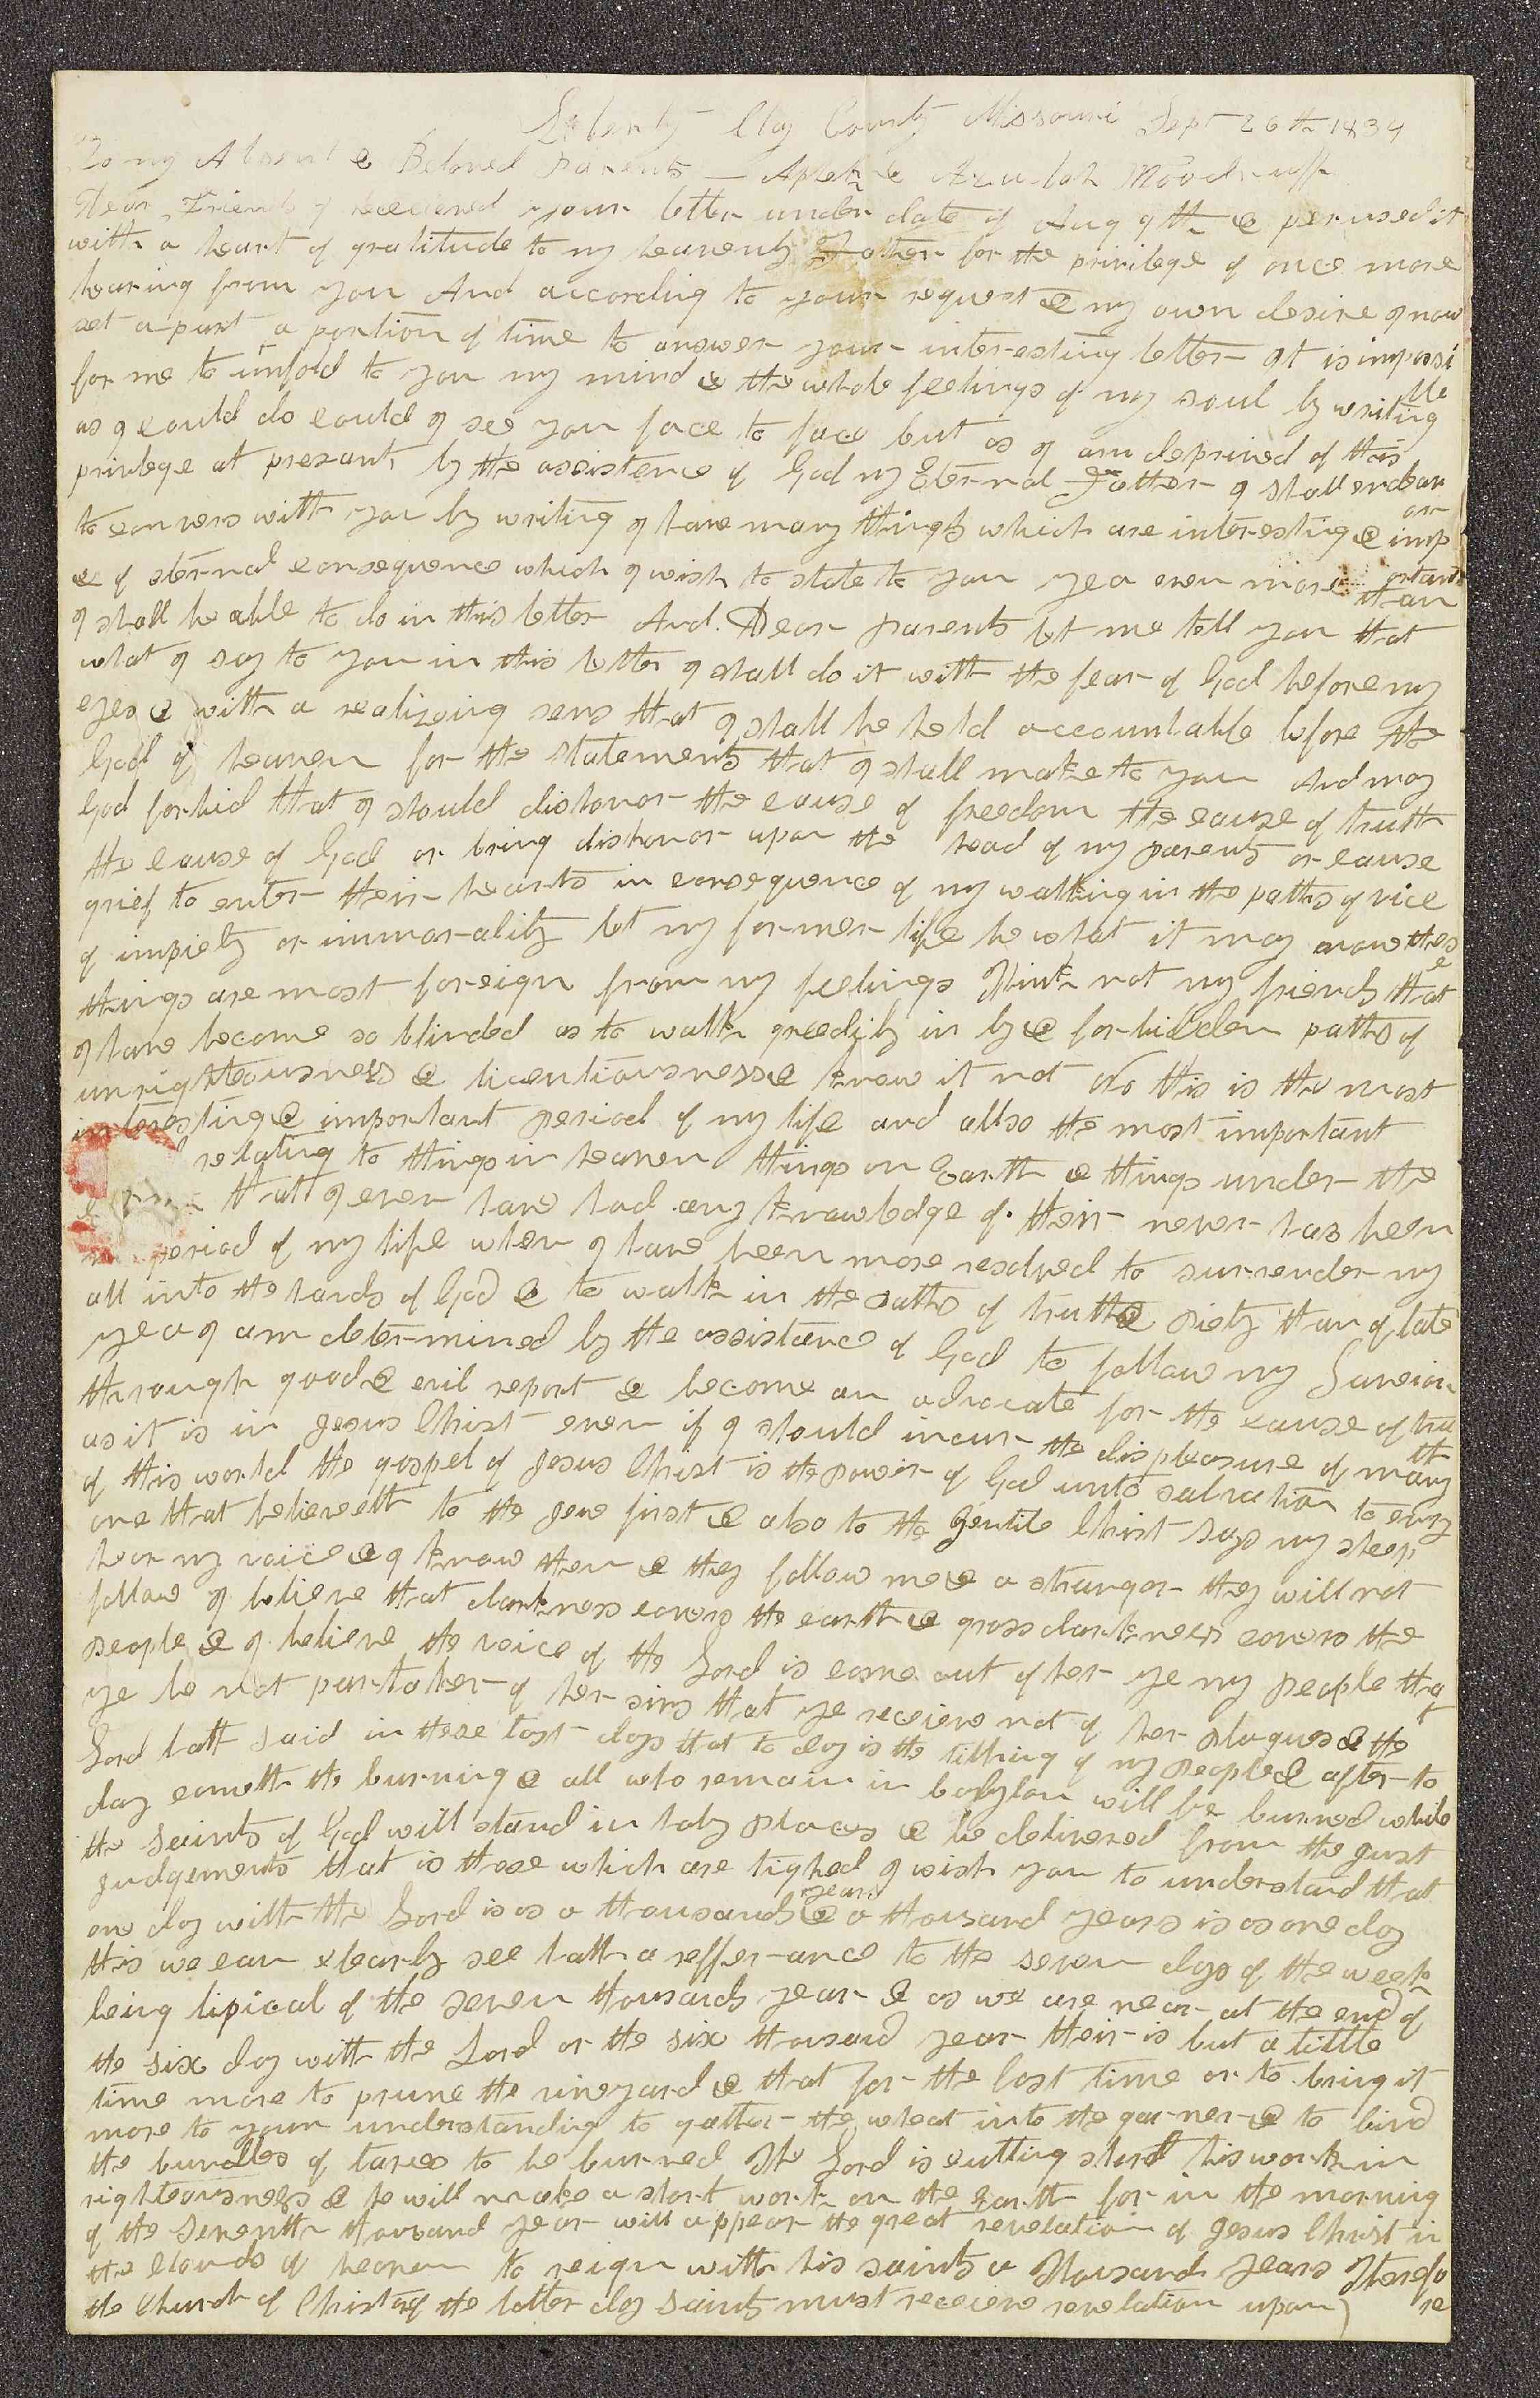 Liberty Clay County Missouri Sept 26th 1834
To my Absent & Beloved Parents — Aphek & Azubah Woodruff
Dear Friends I received your letter under date of Aug 9th & perused it
with a heart of gratitude to my heavenly Father for the privilege of once more
hearing from you And according to your request & my own desire I now
set apart a portion of time to answer your interesting letter It is impossi
ble
for me to unfold to you my mind & the whole feelings of my soul by writing
as I could do could I see you face to face but as I am deprived of this
privlege at presant by the assistence of God my Eternal Father I shall endear
or
to convers with you by writing I have many things which are interesting & imp
ortant
& of eternal consequence which I wish to state to you yea even more than
I shall be able to do in this letter And Dear parents let me tell you that
what I say to you in this letter I shall do it with the fear of God before my
eyes & with a realizeing sens that I shall be held accountable before the
God of heaven for the statements that I shall make to you And may
God forbid that I should dishonor the cause of freedom the cause of truth
the cause of God or bring dishonor upon the head of my parents or cause
grief to enter their hearts in consequence of my walking in the paths of vice
of impiety or immorality let my former life be what it may now thes
e
things are most foreign from my feelings Think not my friends that
I have become so blinded as to walk greedily in by & forbidden paths of
unrighteousness & licentiousness & know it not No this is the most
interesting & important period of my life and allso the most important
relating to things in heaven things on Earth & things under the
that I ever have had any knowledge of their never has been
period of my life when I have been more resolved to surrender my
all into the hands of God & to walk in the paths of truth & piety than of late
yea I am determined by the assistance of God to follow my Saveior
through good & evil report & become an advocate for the cause of tru
th
as it is in Jesus Christ even if I should incur the displeasure of many
of this world the gospel of Jesus Christ is the power of God unto salvation to evry
one that believeth to the Jew first & also to the gentile Christ says my sheep
hear my voice & I know them & they follow me & a stranger they will not
follow I believe that darkness covers the earth & gross darkness covers the
people & I believe the voice of the Lord is come out of her ye my people tha
t
ye be not partaker of her sins that ye receive not of her plagues & the
Lord hath said in these last days that to day is the tithing of my people & after to
day cometh the burning & all who remain in babylon will be burned while
the saints of God will stand in holy places & be delivered from the just
judgements that is those which are tighed I wish you to understand that
years
one day with the Lord is as a thousands & a thousand years is as one day
this we can clearly see hath a refferance to the seven days of the week
being tipical of the seven thousands year & as we are near at the end of
the six day with the Lord or the six thousand year their is but a little
time more to prune the vineyard & that for the last time or to bring it
more to your understanding to gather the wheat into the garner & to bind
the bundles of tares to be burned The Lord is cutting short his work in
righteousness & he will make a short work on the Earth for in the morning
of the seventh thousand year will appear the great revelation of Jesus Christ in
the clouds of heaven to reign with his saints a Thousand years Therefo
re
the Church of Christ of the latter day Saints must receive revelation upon